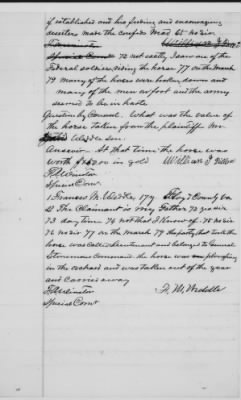 if established and his feeding and encouraging
deserters made the confeds mad 65 no sir
72 not exactly I saw one of the
Federal soldiers riding the horse 77 on the march
79 many of the horses were broken down and
many of the men on foot and the army
seemed to be in haste
Question by Consent. What was the value of
the horse taken from the plaintiffs Mr.
Weddle son.
Answer. At that time the horse was
worth in gold William J
Special Com
1 Francis M. Weddle, 17y Floyd County Va
2 The Claimant is my Father 72 yes sir
73 day time 74 not that I know of 75 no sir
76 no sir 77 on the march 79 the party that took the
horse was called Lieutenant and belonged to General
Stonemans Command the horse was ploughing
in the orchard and was taken out of the gear
and carried away
F. M. Weddle
Special Comr